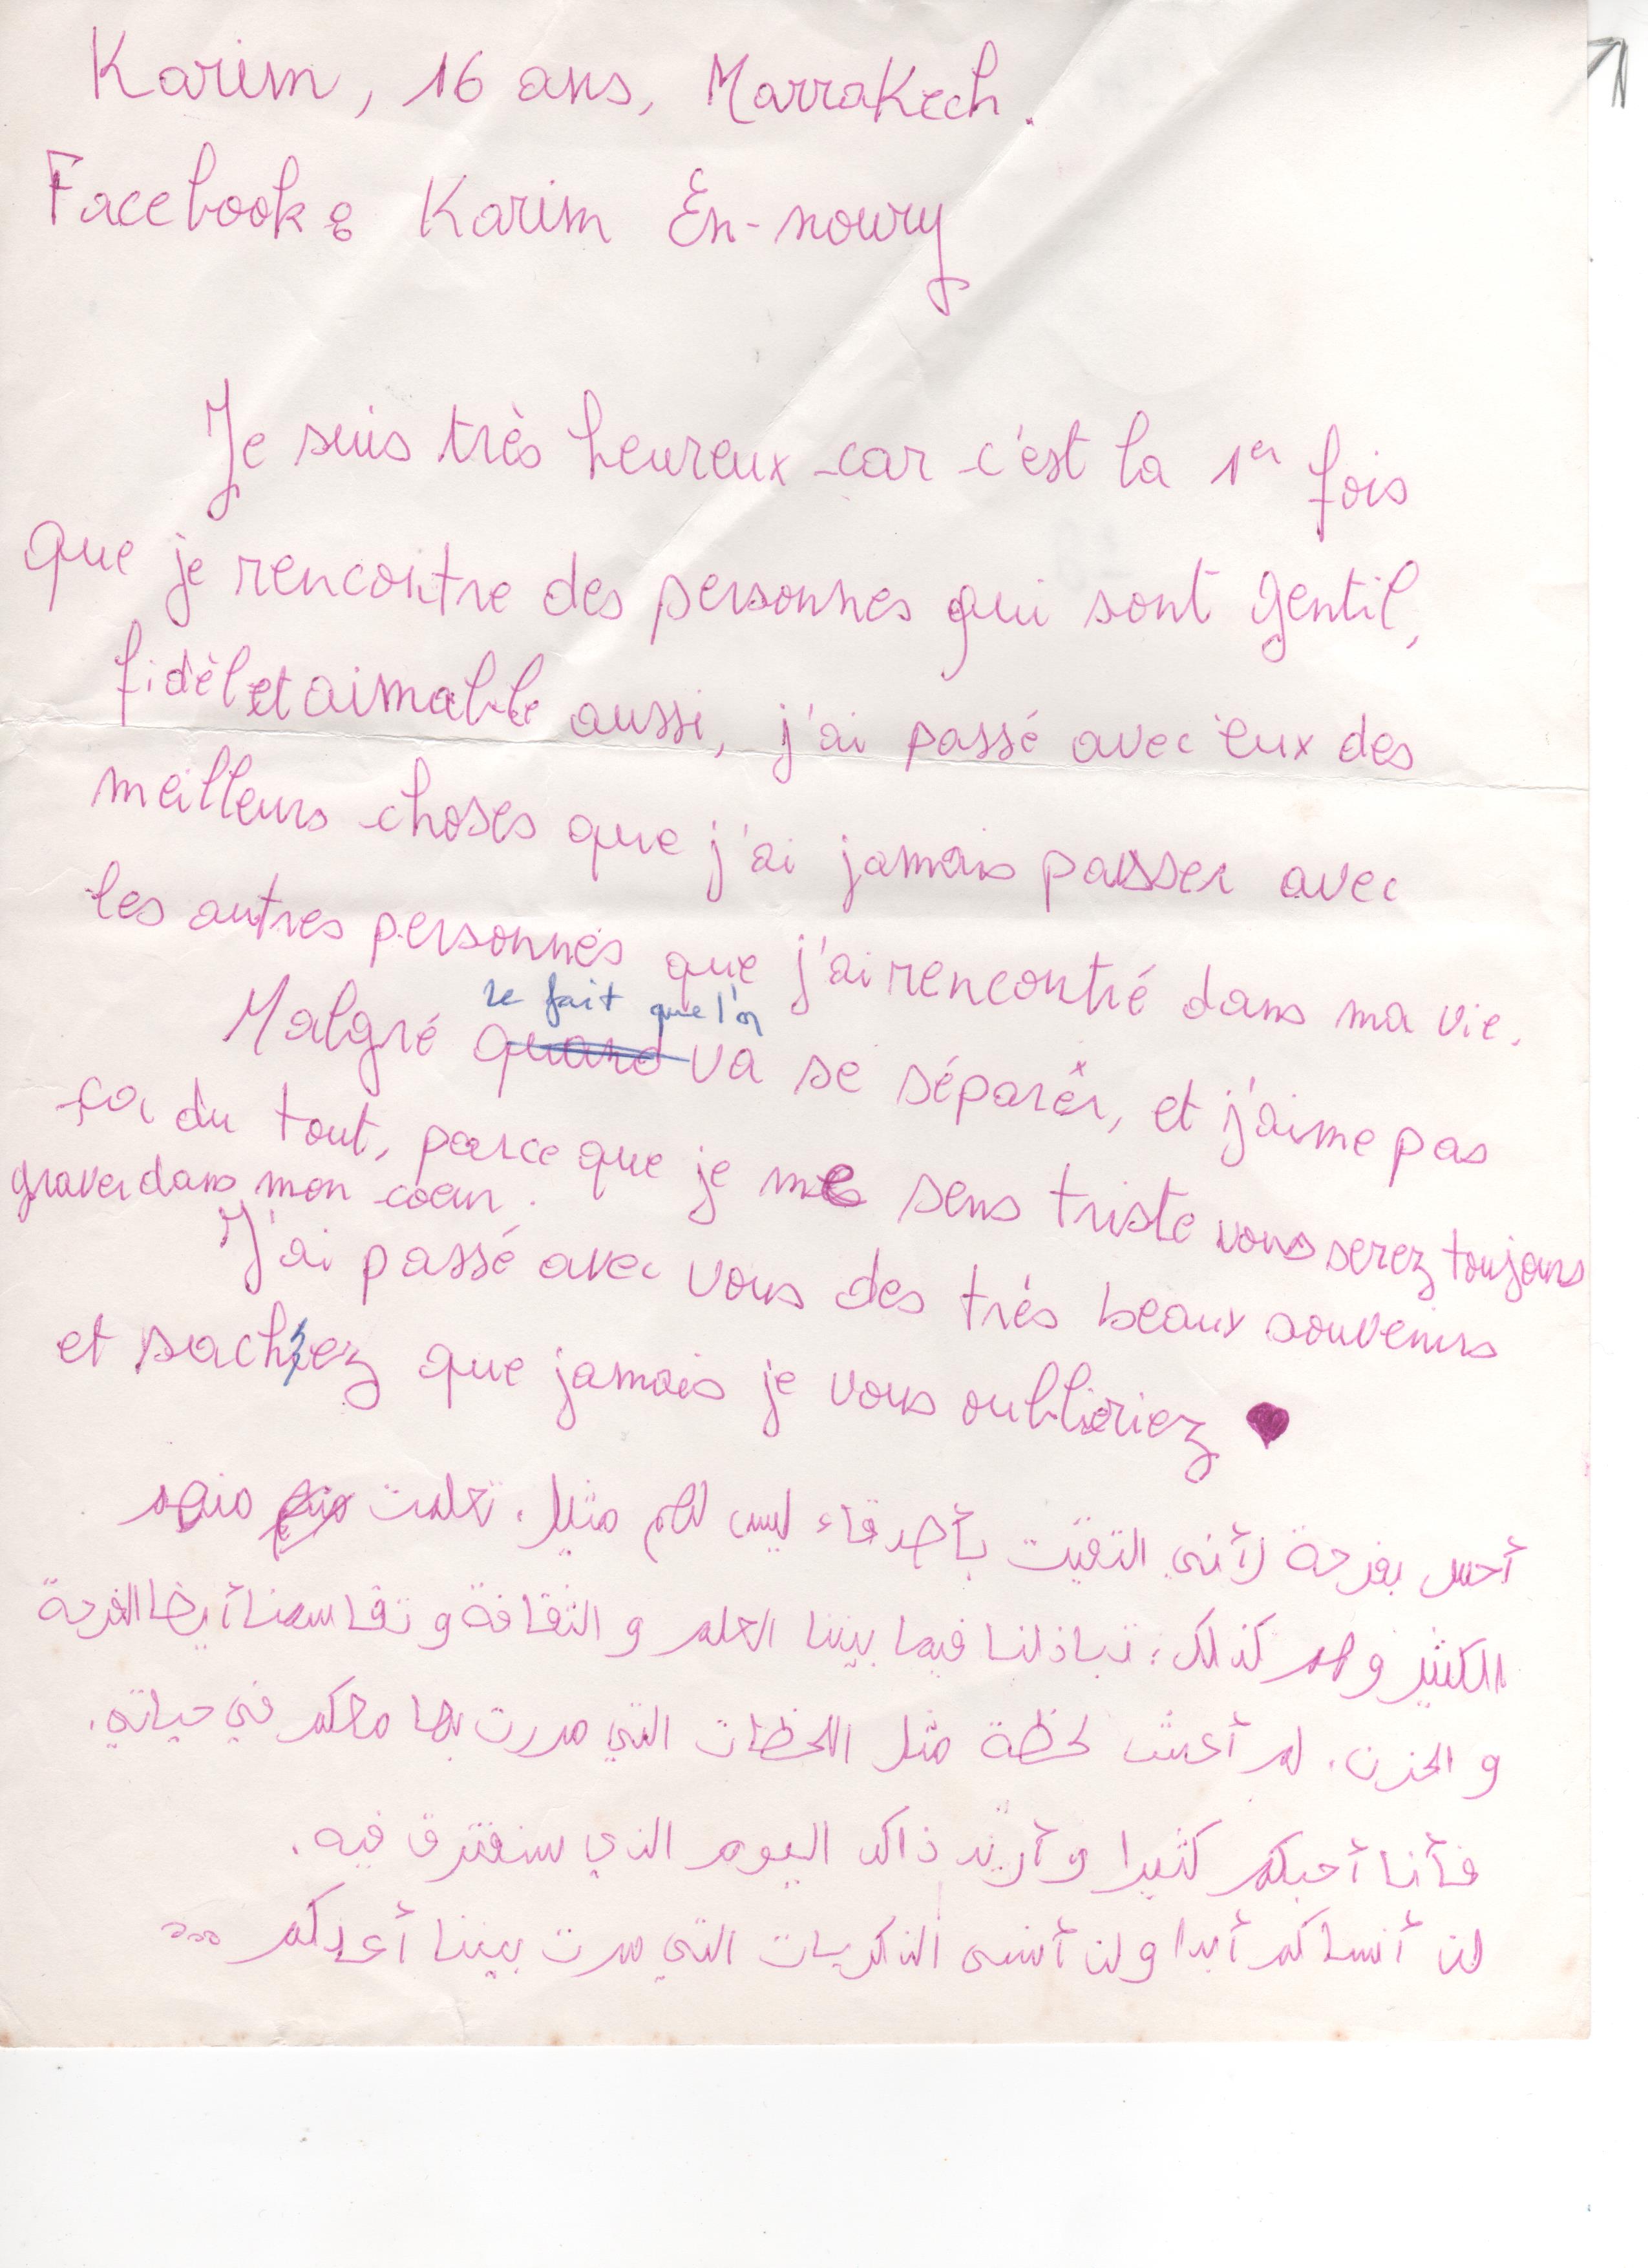 Karim, 16 ans, Marrakech.
Facebook : Karim En-noury
Je suis très heureux car c'est la 1er fois
que je rencontre des personnes qui sont gentil,
fidèl et aimable aussi, j'ai passé avec eux des
meilleurs choses que j'ai jamais passer avec
les autres personnes que j'ai rencontré dans ma vie.
le fait que l'on
Malgré quand va se séparer, et j'aime pas
ça du tout, parce que je me sens triste vous serez toujours
graver dans mon coeur.
J'ai passé avec vous des très beaux souvenirs
et sachez que jamais je vous oublieriez
أحس بفرحة لأنني التقيت بأصدقاء ليس لهم مثيل. تعلمت منهم
الكثير وهم كذلك، تبادلنا فيما بيننا العلم و الثقافة و تقاسمنا أيضا الفرحة
و الحزن. لم أعش لحظة مثل اللحظات التي مررت بها معكم في حياتي.
فأنا أحبكم كثيرا و ذاك اليوم الذي سنفترق فيه.
لن أنساكم أبدا ولن أنسى الذكريات التي مرت بيننا أعدكم ...